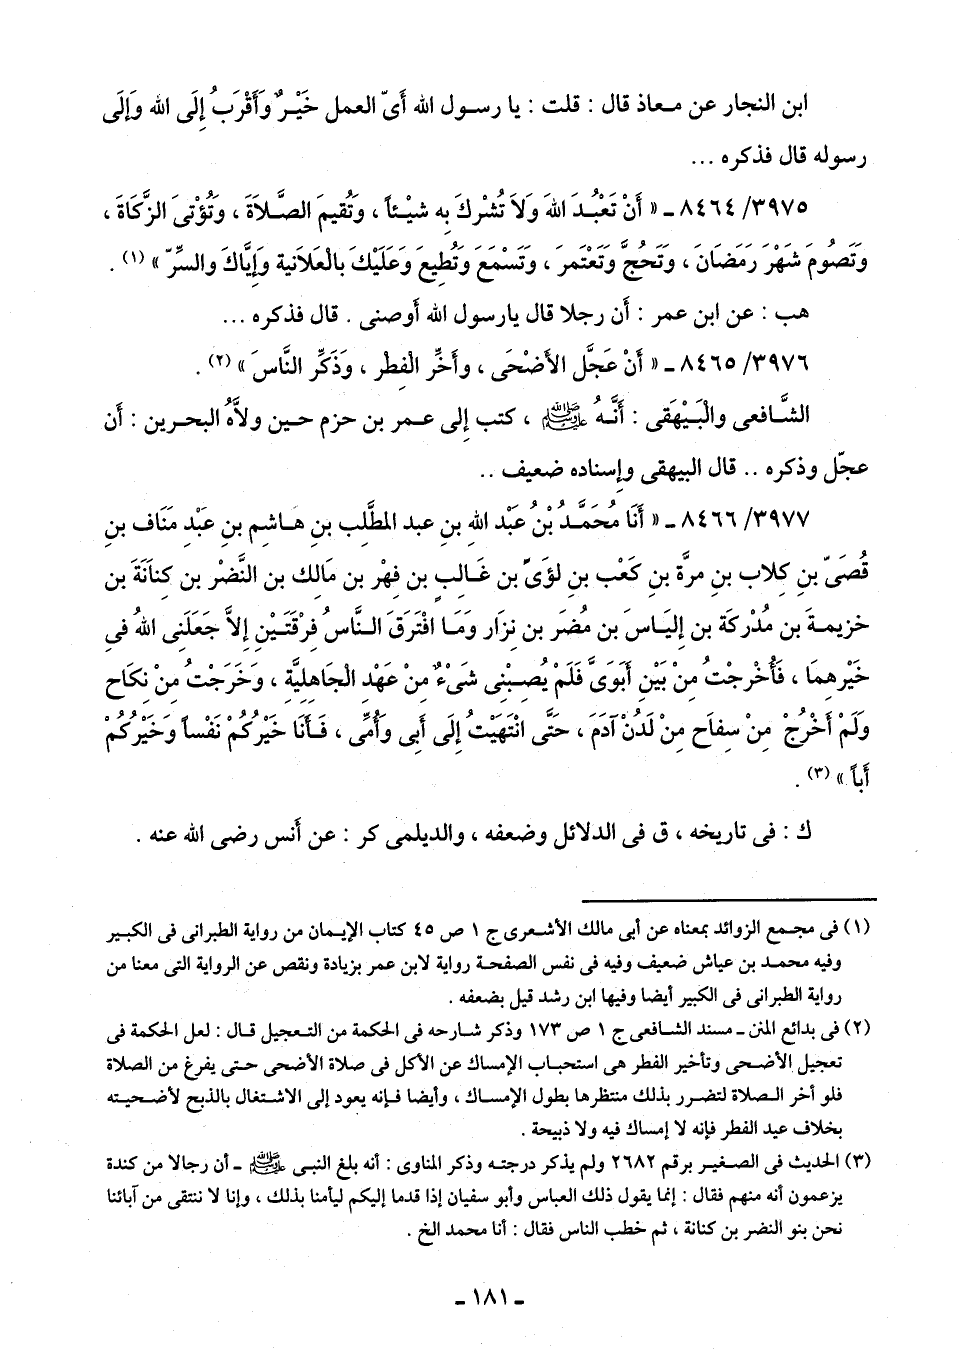 ابن النجار عن معاذ قال : قلت : يا رسول الله أىّ العمل خَيْرٌ وَأَقْرَبُ إِلَى الله وَإِلَى
رسوله قال فذكره ...
٣٩٧٥/ ٨٤٦٤ ـ « أَنْ تَعْبُدَ اللهَ وَلاَ تُشْرِكَ بِه شَيْئاً ، وَتُقِيمَ الصَّلاَةَ ، وَتُؤْتِىَ الزَّكَاةَ ،
وَتَصُومَ شَهْرَ رَمَضَانَ ، وَتَحُجَّ وَتَعْتَمرَ ، وَتَسْمَعَ وَتُطِيعَ وَعَلَيْكَ بالْعَلاَنية وَإِيَّاكَ والسِّرّ » (١) .
هب : عن ابن عمر : أن رجلا قال يارسول الله أوصنى . قال فذكره ...
٣٩٧٦/ ٨٤٦٥ ـ « أَنْ عَجِّل الأَضْحَى ، وأَخِّرِ الْفِطْر ، وَذَكِّرِ النَّاسَ » (٢) .
الشَّافعى والْبَيْهَقى : أَنَّهُ ﷺ ، كتب إلى عمر بن حزم حين ولاَّهُ البحرين : أن
عجّل وذكره .. قال البيهقى وإسناده ضعيف ..
٣٩٧٧/ ٨٤٦٦ ـ « أَنَا مُحَمَّدُ بْنُ عَبْدِ الله بنِ عبد المطَّلب بنِ هَاشِم بنِ عَبْدِ مَنَاف بنِ
قُصَىّ بنِ كِلاب بنِ مرَّةَ بنِ كَعْب بنِ لؤَىِّ بنِ غَالِبِ بن فِهْر بن مَالِك بن النَّضْر بن كنَانَةَ بن
خزيمة بن مُدْركَة بن إِليَاس بن مُضَرَ بن نِزَار وَمَا افْتَرَقَ النَّاسُ فِرْقَتَيْنِ إِلاَّ جَعَلَنِى اللهُ فِى
خَيْرِهِمَا ، فَأُخْرِجْتُ مِنْ بَيْنِ أَبَوَىَّ فَلَمْ يُصِبْنِى شَىْءٌ مِنْ عَهْدِ الْجَاهِليَّةِ ، وَخَرَجْتُ مِنْ نكَاح
وَلَمْ أَخْرُجْ مِنْ سِفَاحِ مِنْ لَدُنْ آدَمَ ، حَتَّى انْتَهَيْتُ إِلَى أَبِى وَأُمِّى ، فَأَنَا خَيْرُكُمْ نَفْساً وَخَيْرُكُمْ
أَباً » (٣) .
ك : فى تاريخه ، ق فى الدلائل وضعفه ، والديلمى كر : عن أنس رضى الله عنه .
(١) فى مجمع الزوائد بمعناه عن أبى مالك الأشعرى ج ١ ص ٤٥ كتاب الإيمان من رواية الطبرانى فى الكبير
وفيه محمد بن عياش ضعيف وفيه فى نفس الصفحة رواية لابن عمر بزيادة ونقص عن الرواية التى معنا من
رواية الطبرانى فى الكبير أيضا وفيها ابن رشد قيل بضعفه .
(٢) فى بدائع المنن ـ مسند الشافعى ج ١ ص ١٧٣ وذكر شارحه فى الحكمة من التعجيل قال : لعل الحكمة فى
تعجيل الأضحى وتأخير الفطر هى استحباب الإمساك عن الأكل فى صلاة الأضحى حتى يفرغ من الصلاة
فلو أخر الصلاة لتضرر بذلك منتظرها بطول الإمساك ، وأيضا فإنه يعود إلى الاشتغال بالذبح لأضحيته
بخلاف عيد الفطر فإنه لا إمساك فيه ولا ذبيحة .
(٣) الحديث فى الصغير برقم ٢٦٨٢ ولم يذكر درجته وذكر المناوى : أنه بلغ النبى ﷺ ـ أن رجالا من كندة
يزعمون أنه منهم فقال : إنما يقول ذلك العباس وأبو سفيان إذا قدما إليكم ليأمنا بذلك ، وإنا لا ننتقى من آبائنا
نحن بنو النضر بن كنانة ، ثم خطب الناس فقال : أنا محمد الخ .
ـ ١٨١ ـ